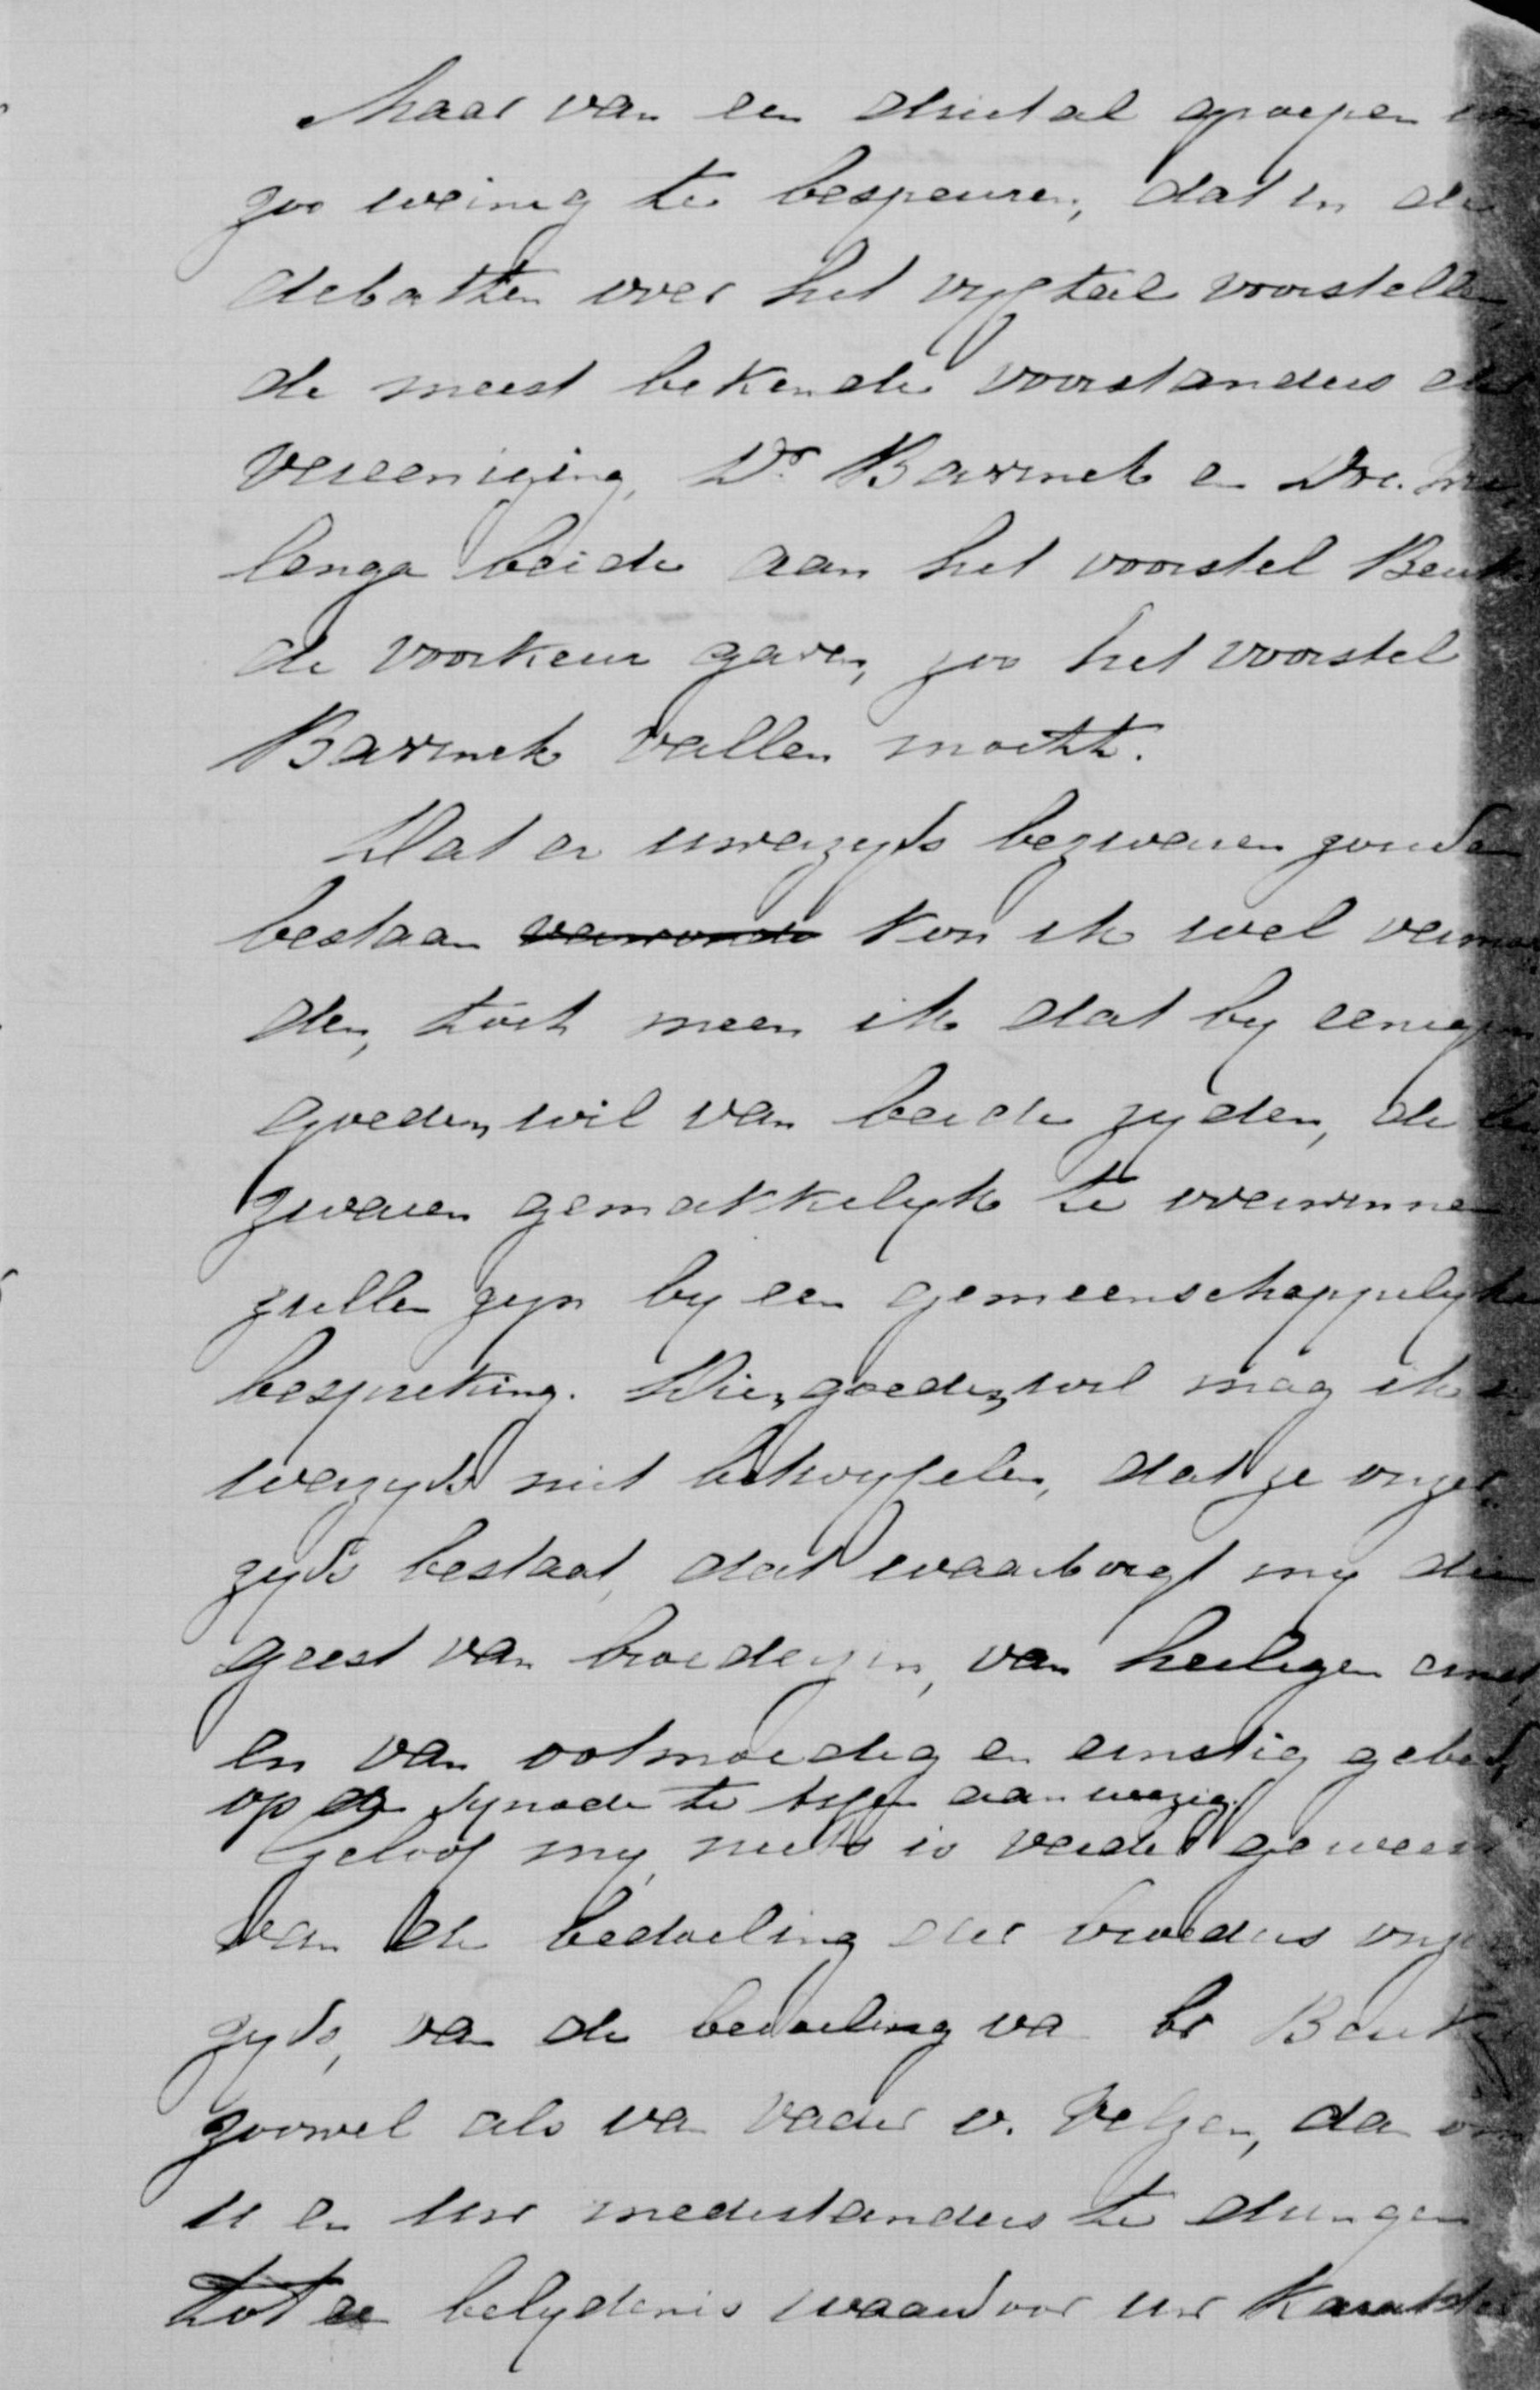 Maar van een drietal groepen
zoo weinig te bespeuren, dat in de
debatten over het vyftal voorstellen,
de meest bekende voorstanders der
Vereeniging, Ds Bavinck en Doc.
lenga beide aan het voorstel Beuk
de voorkeur gaven, zoo het voorstel
Bavinck vallen mocht.
Dat er uwerzyds bezwaren zouden
bestaan kon ik wel vermoe
den, toch meen ik dat by eenigen
goeden wil van beide zyden, de be
zwaren gemakkelyk te overwinnen
zullen zyn by een gemeenschappelyke
bespreking. Dien goeden wil mag ik u
werzyds niet betwyfelen, dat ze onzer
zyds bestaat, dat waarborgt my die
geest van broederzin, van heiligen ernst,
en van ootmoedig en ernstig gebed,
op de Synode te Assen aanwezig.
Geloof my, niets is verder geweest
van de bedoeling der broeders onzer
zyds, van de bedoeling va br Beuk
zoowel als va vader v. Velzen, dan om
u en uw medestanders te dringen
tot een belydenis waardoor uw